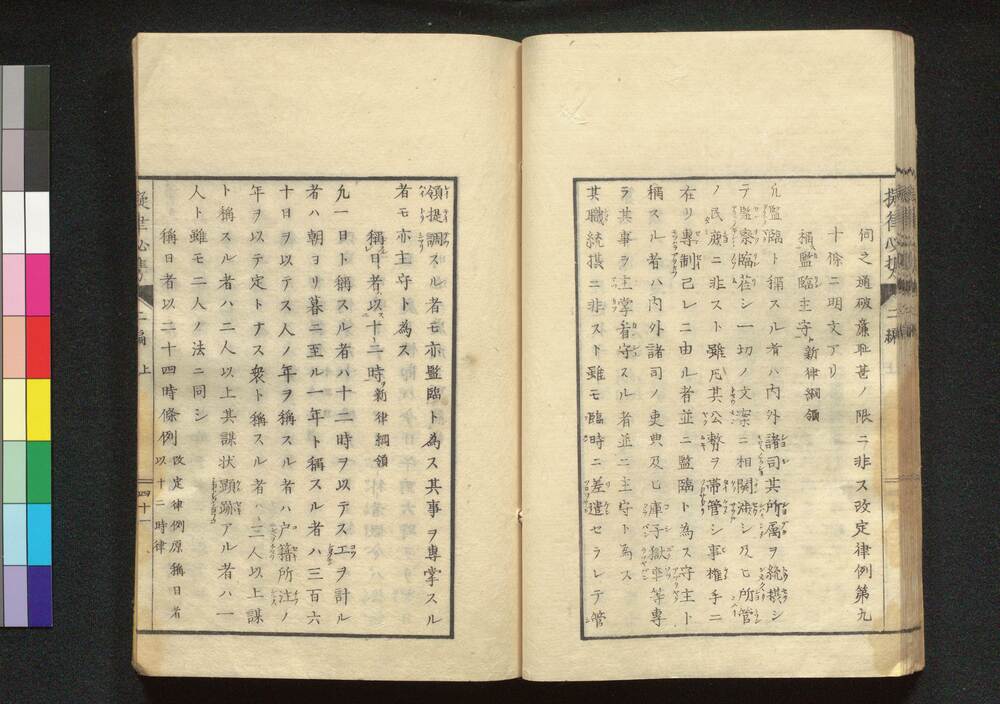 伺之通破廉耻甚ノ限ニ非ス改定律例第九
十條ニ明文アリ
稱監臨主守 新律綱領
凡監臨ト稱スル者ハ内外諸司其所属ヲ統摂シ
テ監察臨莅シ一切ノ文案ニ相関渉シ及ヒ所管
ノ民歳ニ非スト雖凡其公務ヲ帶管シ事權手ニ
在リ專制己レニ由ル者並ニ監臨ト為ス守主ト
稱スル者ハ内外諸司ノ吏典及ヒ庫子獄卒等專
ラ其事ヲ主掌看守スル者並ニ主守ト為ス
其職統摂ニ非スト雖モ臨時ニ差遣セラレテ管
二編 上
領提調スル者モ亦監臨ト為ス其事ヲ專掌スル
者モ亦主守ト為ス
稱日者以十二時 新律綱領
凡一日ト稱スル者ハ十二時ヲ以テス工ヲ計ル
者ハ朝ヨリ暮ニ至ル一年ト稱スル者ハ三百六
十日ヲ以テス人ノ年ヲ稱スル者ハ戸籍所注ノ
年ヲ以テ定トナス衆ト稱スル者ハ三人以上謀
ト稱スル者ハ二人以上其謀状顕跡アル者ハ一
人ト雖モ二人ノ法ニ同シ
稱日者以二十四時條例 改定律例原稱日者以十二時律
二編 上
四十一